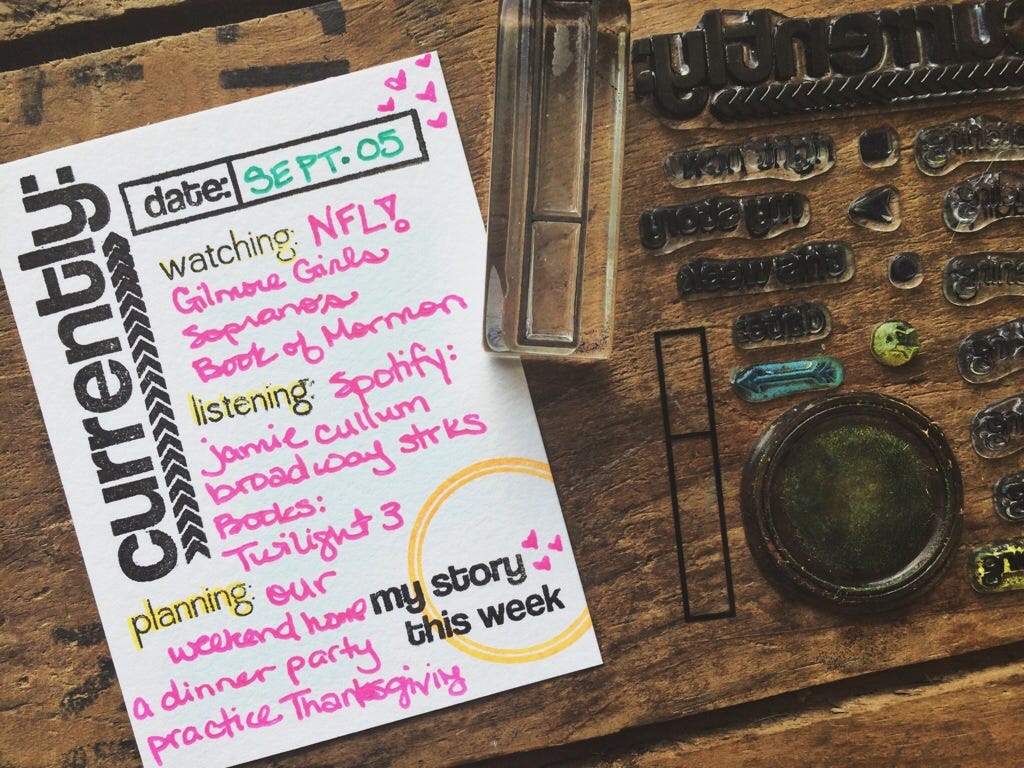 currently:
date: SEPT. 05
watching: NFL!
Gilmore Girls
Sopranos
Book of Mormon
listening: Spotify:
jamie cullum
broadway strks
Books:
Twilight 3
planning: our
weekend home
a dinner party
practice Thanksgiviy
my story
this week